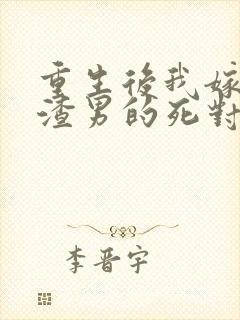 重生後我嫁
渣男的死對
李晋宇